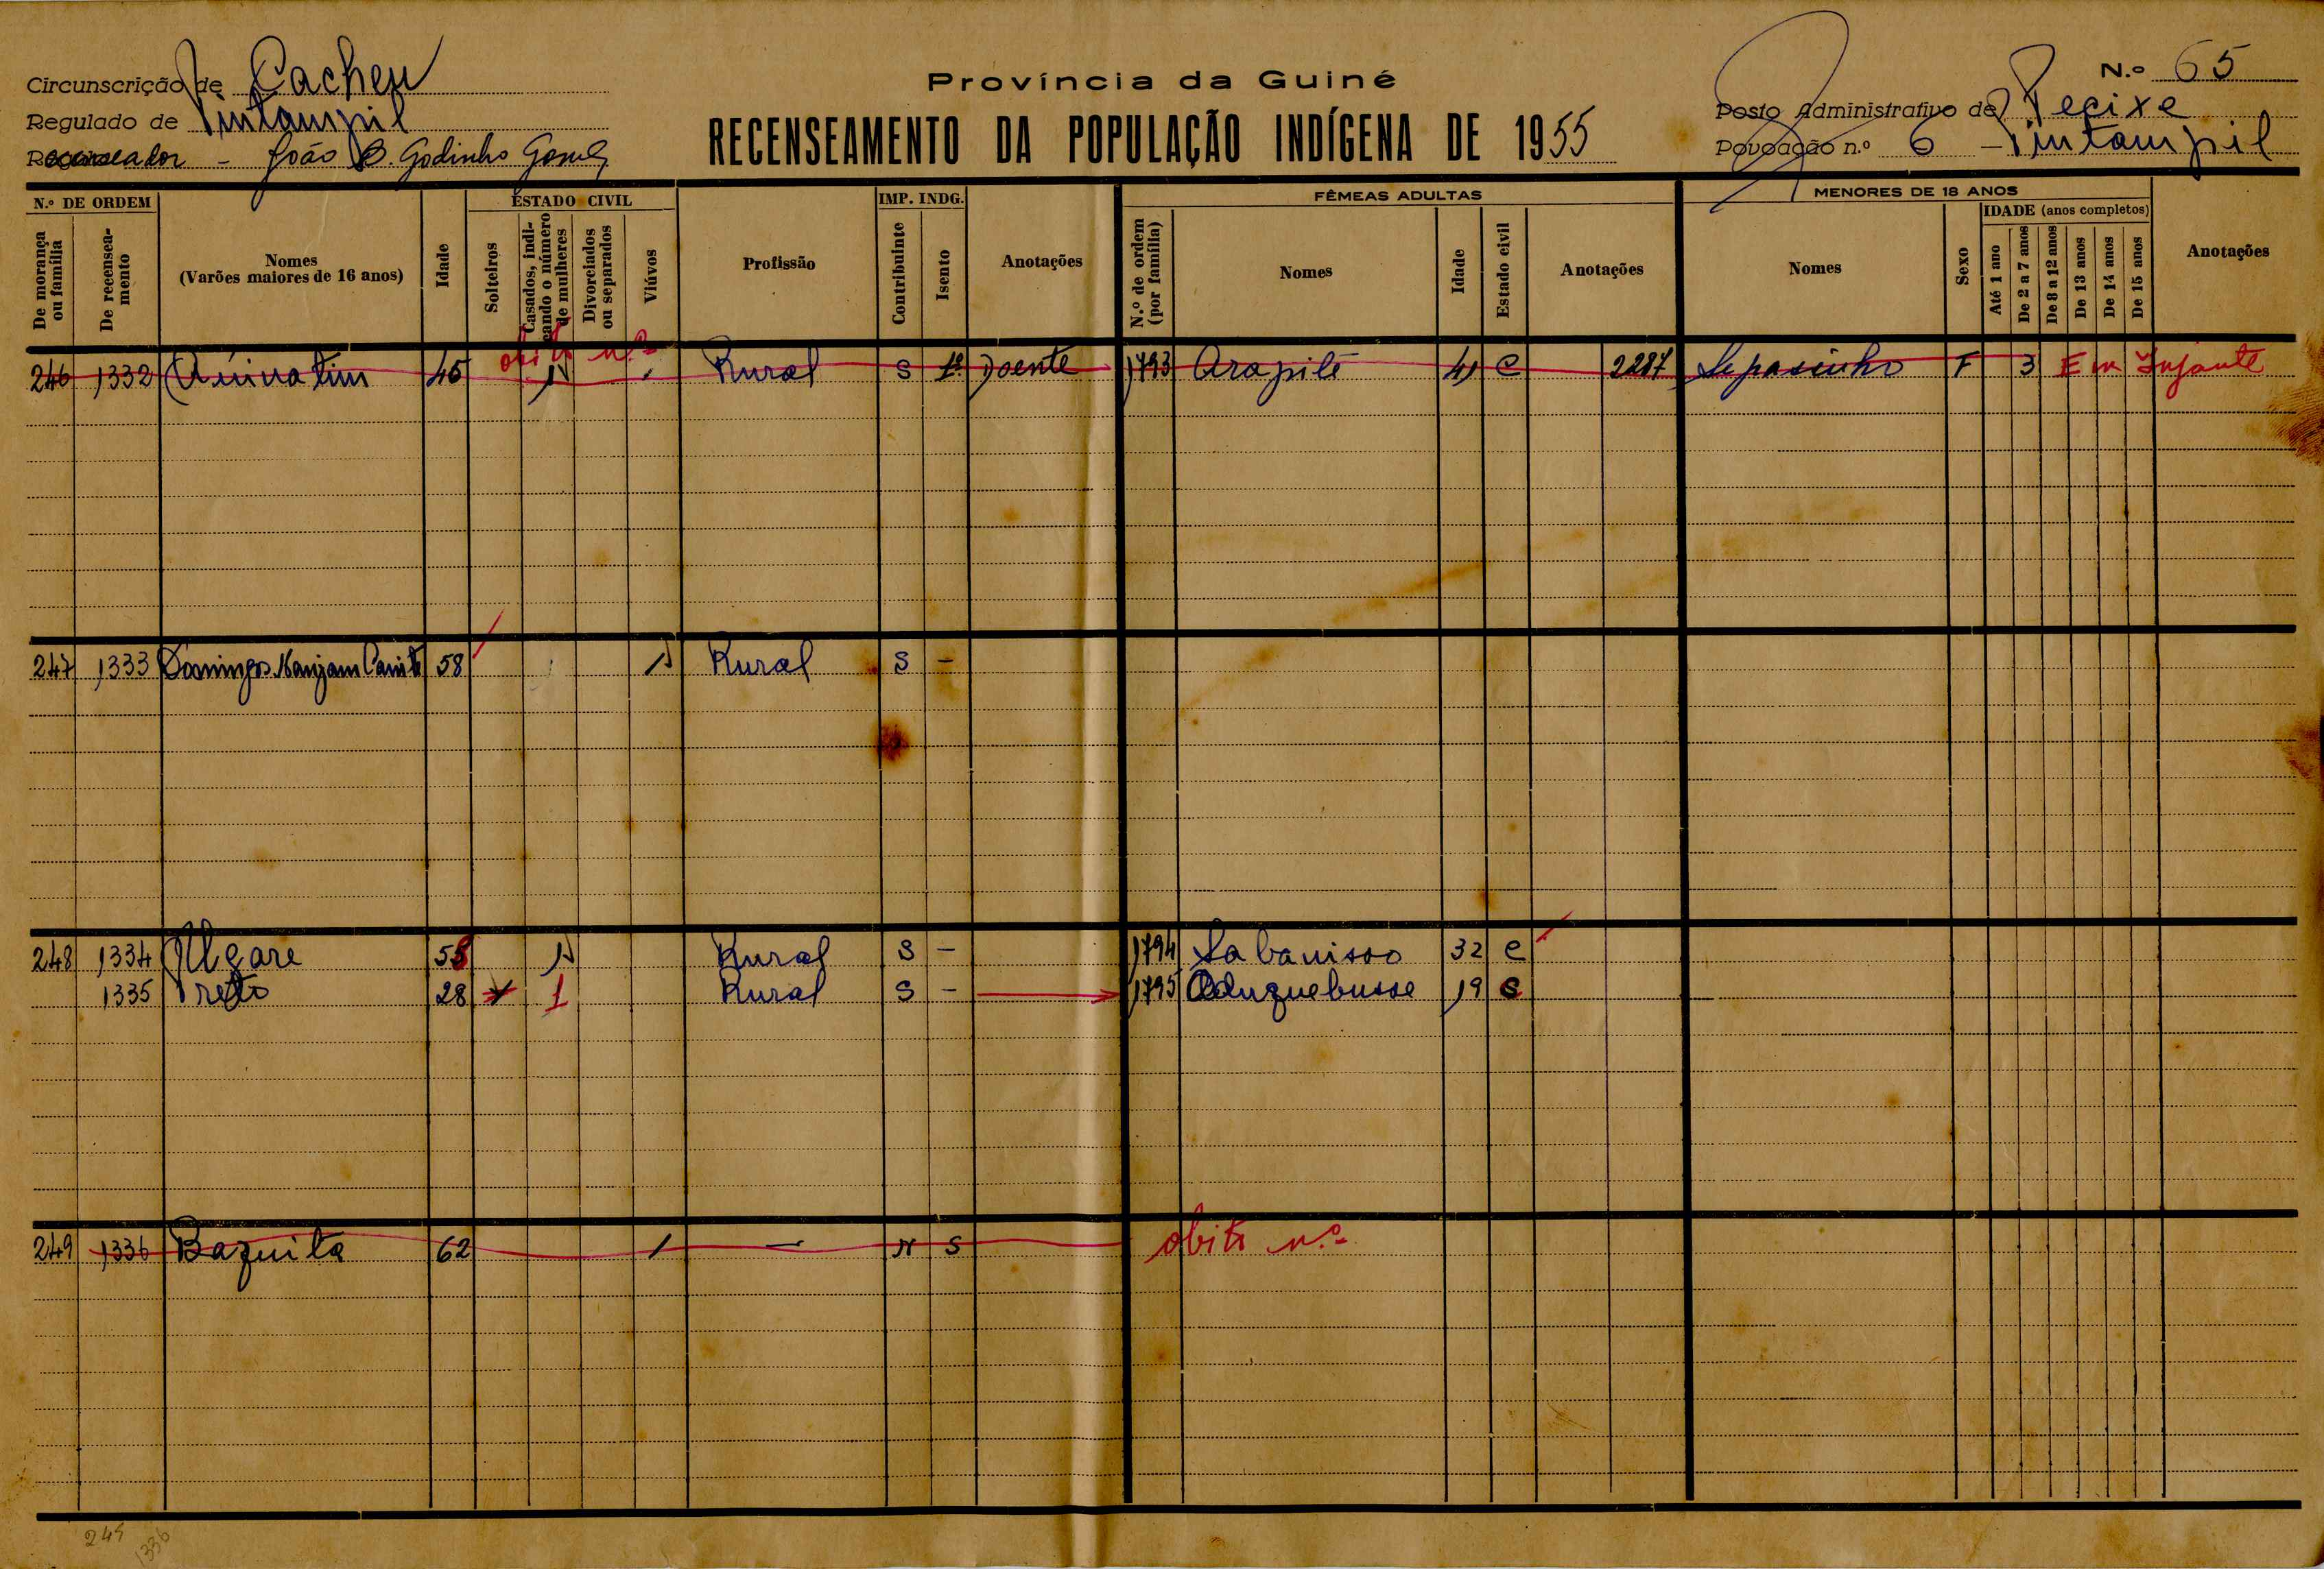 Circunscrição de Cacheu
Província da Guiné
N.º 65
Regulado de Pintampil
Posto Administrativo de Pecixe
Recenseador - João B. Godinho Gomes
RECENSEAMENTO DA POPULAÇÃO INDÍGENA DE 1955
Povoação n.º 6 - Pintampil
N.º DE ORDEM
ESTADO CIVIL
IMP. INDG.
FÊMEAS ADULTAS
MENORES DE 18 ANOS
De morança ou família
De recenseamento
Nomes
(Varões maiores de 16 anos)
Idade
Solteiros
Casados, indicando o número de mulheres
Divorciados ou separados
Viúvos
Profissão
Contribuinte
Isento
Anotações
N.º de ordem (por família)
Nomes
Idade
Estado civil
Anotações
Nomes
Sexo
IDADE (anos completos)
Até 1 ano
De 2 a 7 anos
De 8 a 12 anos
De 13 anos
De 14 anos
De 15 anos
Anotações
obito n.º
246 1332 45 1 Rural S 1º Doente 1793 Arapile 41 C 2287 Sepasinho F 3 Em Infante
247 1333 Domingos 58 1 Rural S -
248 1334 58 1 Rural S - 1794 Sabanisso 32 C
1335 Preto 28 1 Rural S - 1795 19
249 1336 Baquita 62 / - N S obito n.º
249
1336